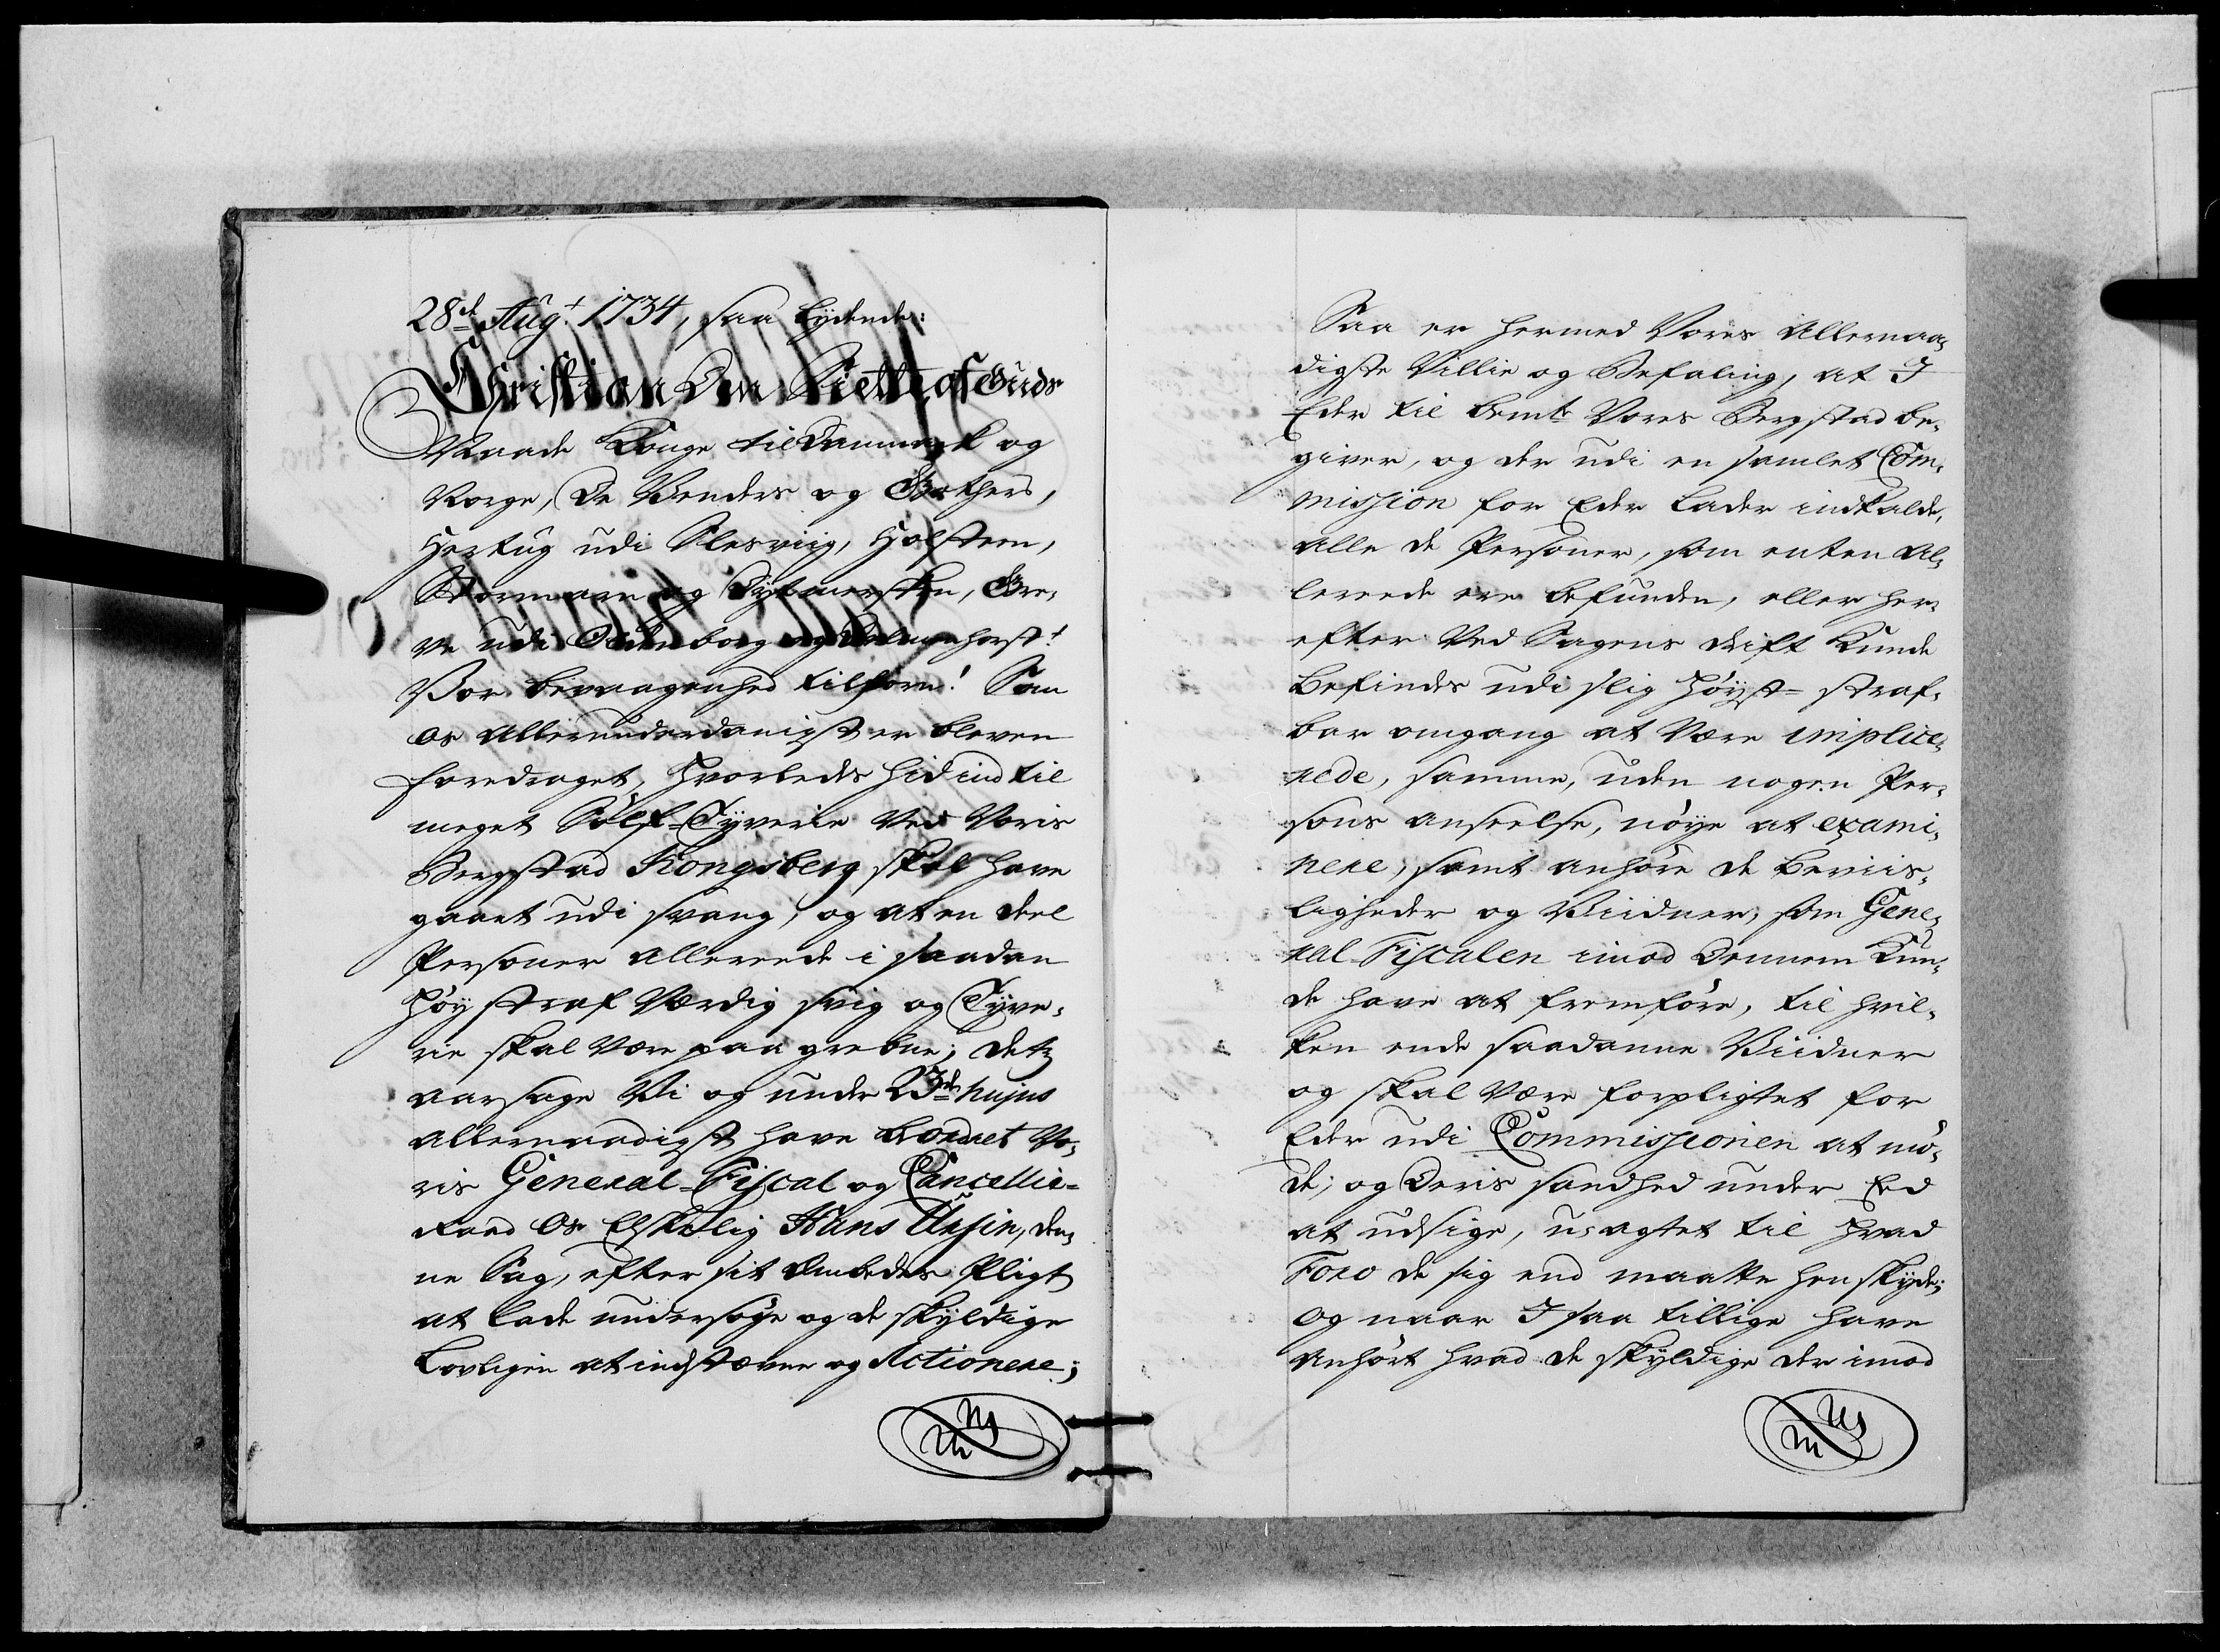 28de Aug.t 1734, saa lydende:
Christian den Siette, af Guds
Naade Konge til Danmark og
Norge, De Venders og Gothers,
Hertug udi Slesviig, Holsteen,
Stormarn og Dytmersken, Gre¬
ve udi Oldenborg og Delmenhorst!
Vor bevaagenhed tilforn! Som
os allerunderdanigst er bleven
foredraget, hvorledes hid ind til
meget Sölf-Tyverie ved Voris
Bergstad Kongsberg skal have
gaaet udi svang, og at en deel
Personer allereede i saadan
höy straf værdig svig og Tyve¬
rie skal være paa grebne; detz
aarsage Vi og under 23de hujus
allernaadigst have beordret Vo¬
ris General-Fiscal og Cancellie-
Raad os Elskelig Hans Ursin, den¬
ne Sag, efter sit Embedes Pligt
at lade undersöge og de skyldige
lovligen at indstævne og Actionere;
Saa er hermed Vores Allernaa¬
digste Villie og Befaling, at I
Eder til bemte Vores Bergstad be¬
giver, og der udi en samlet Com¬
mission for Eder lader indkalde,
alle de Personer, som enten al¬
lereede ere befunden, eller her¬
efter ved Sagens drift kunde
befindes udi slig höyst-straf¬
bar omgang at være implice¬
rede, samme, uden nogen Per¬
sons anseelse, nöye at exami¬
nere, samt anhöre de beviis¬
ligheder og Viidner, som Gene¬
ral-Fiscalen imod dennem kun¬
de have at fremföre, til hvil¬
ken ende saadanne Viidner
og skal være forpligtet for
Eder udi Commissionen at mö¬
de, og deris sandhed under Eed
at udsige, uagtet til hvad
Foro de sig end maatte henskyde;
og naar I saa tillige have
anhört hvad de skyldige der imod